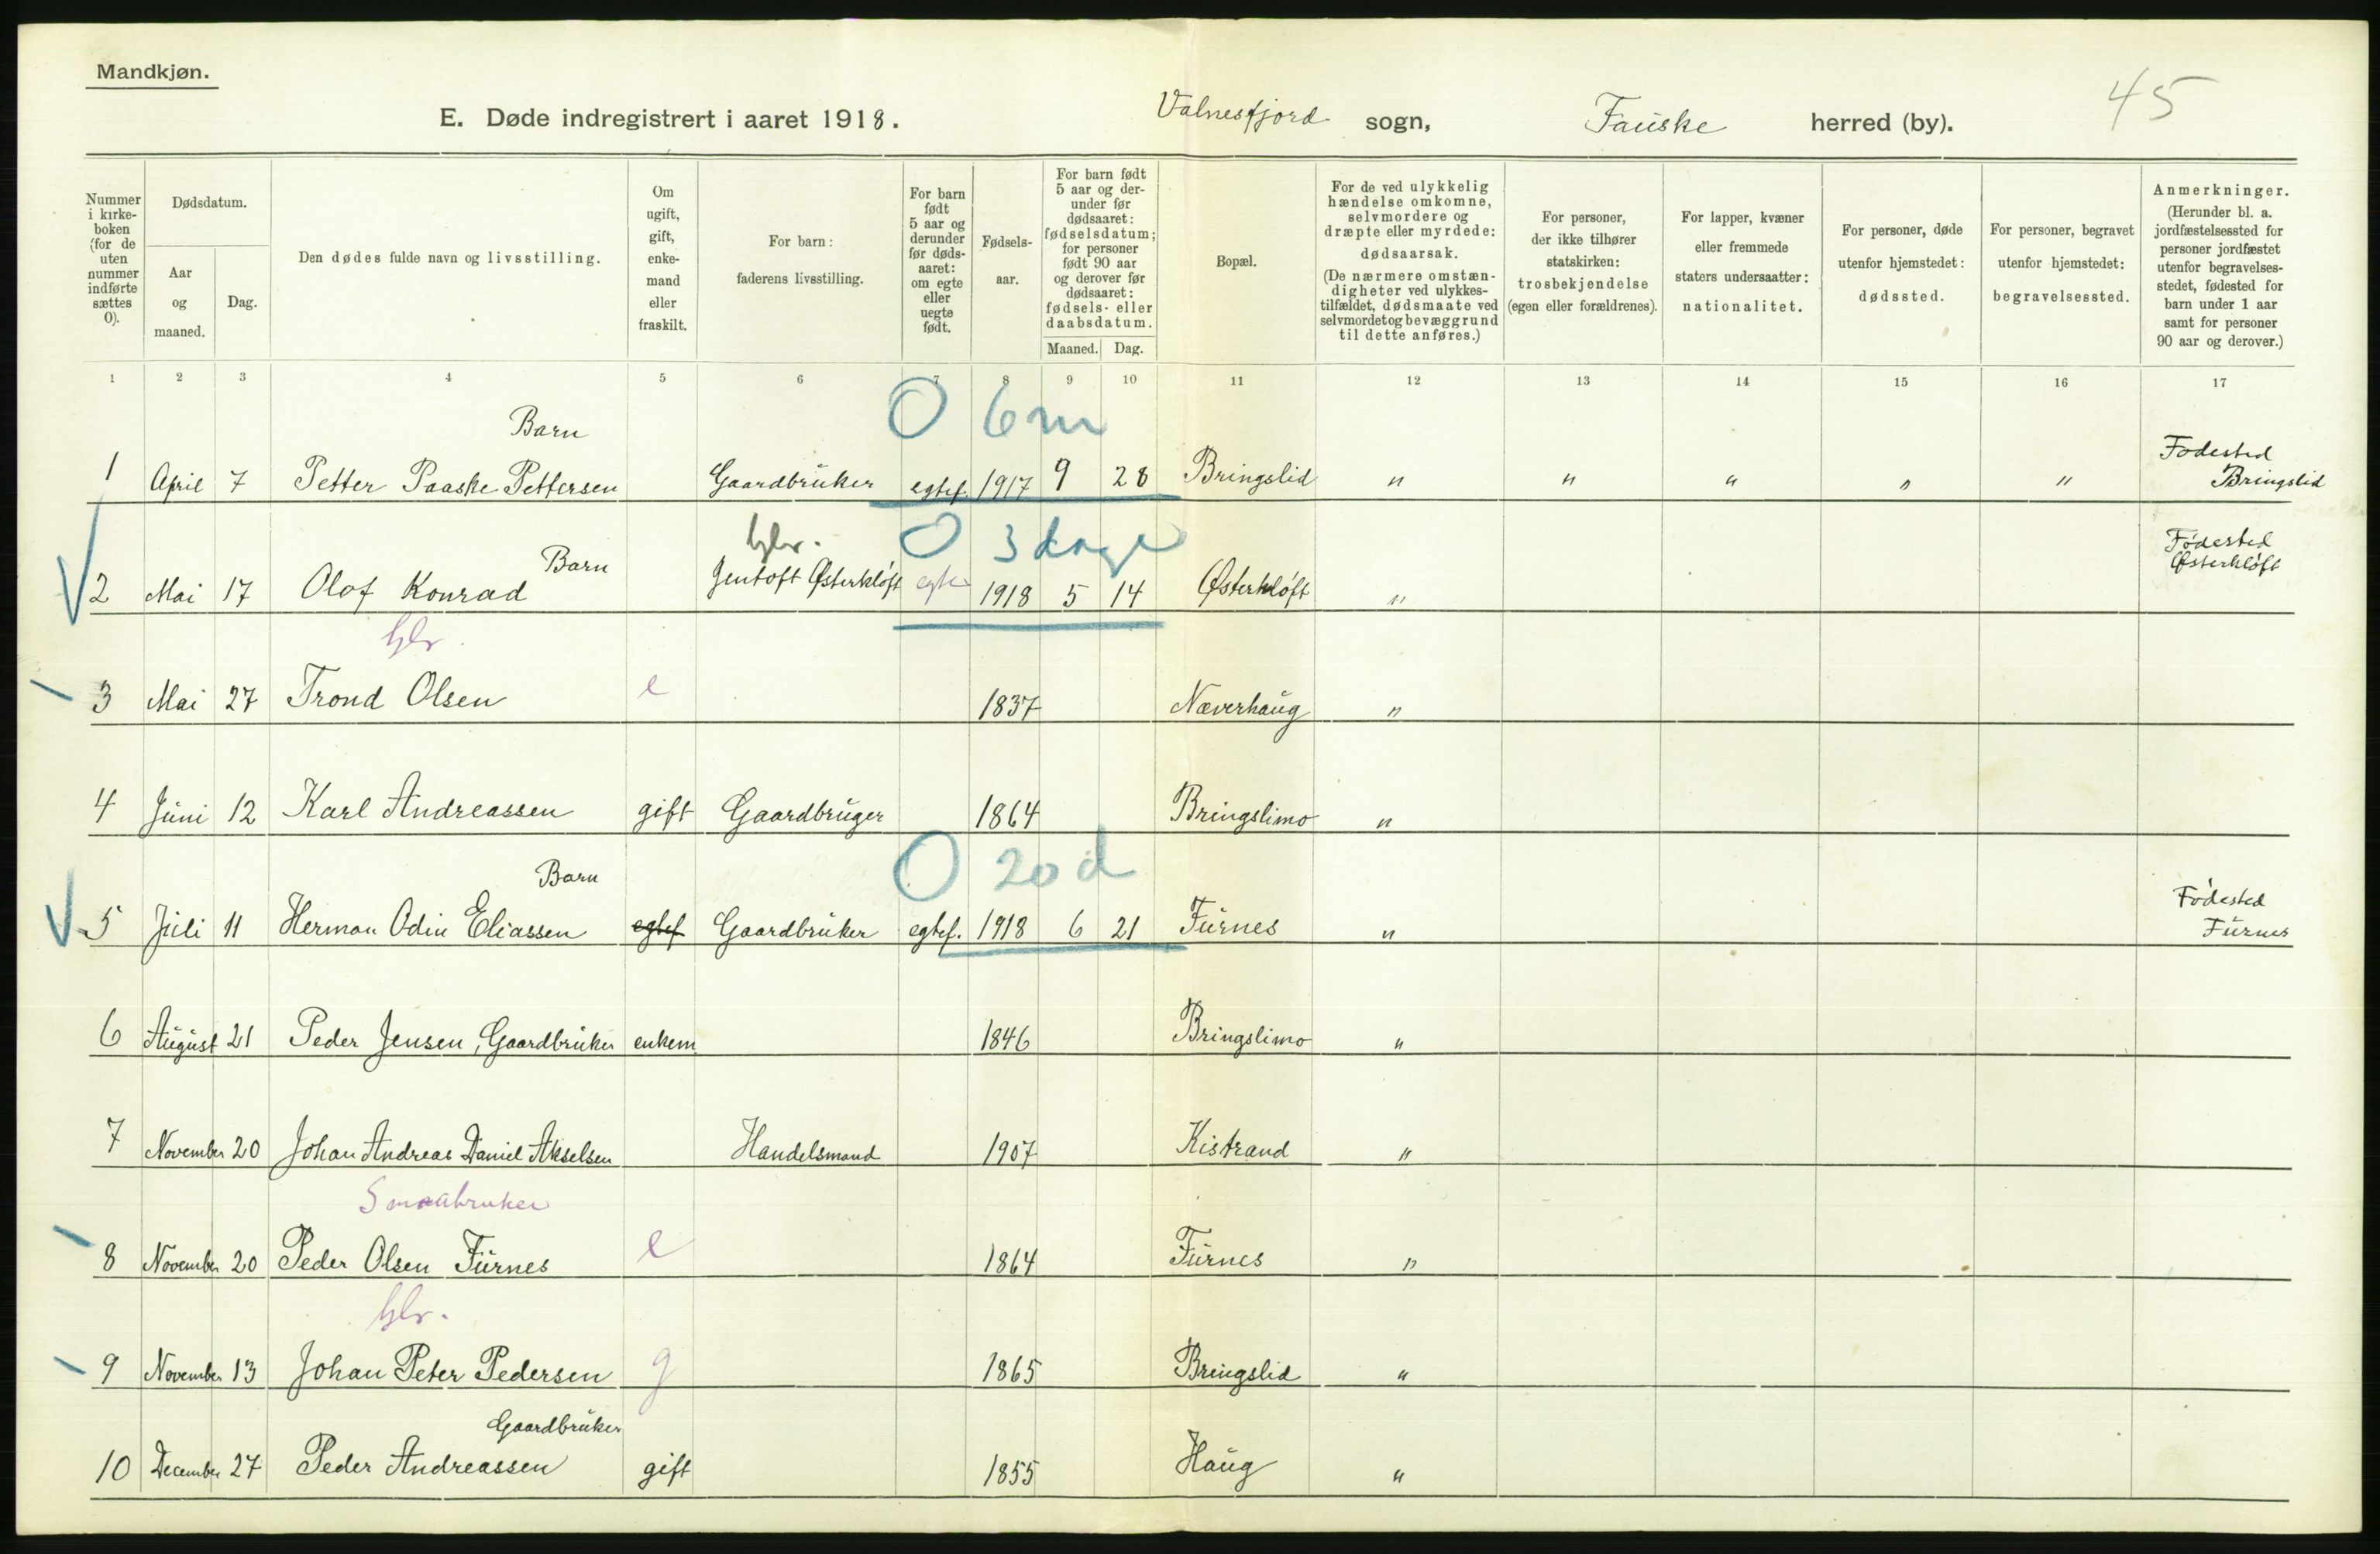 Mandkjøn.
E. Døde indregistrert i aaret 1918. Valnesfjord sogn, Fauske herred (by). 45
Nummer i kirke-boken (for de uten nummer indførte sættes 0).
Dødsdatum.
Aar og maaned.
Dag.
Den dødes fulde navn og livsstilling.
Om ugift, gift, enke-mand eller fraskilt.
For barn: faderens livsstilling.
For barn født 5 aar og derunder før døds-aaret: om egte eller uegte født.
Fødsels-aar.
For barn født 5 aar og der-under før dødsaaret: fødselsdatum; for personer født 90 aar og derover før dødsaaret: fødsels- eller daabsdatum.
Maaned. Dag.
Bopæl.
For de ved ulykkelig hændelse omkomne, selvmordere og dræpte eller myrdede: dødsaarsak. (De nærmere omstæn-digheter ved ulykkes-tilfældet, dødsmaate ved selvmord et og bevæggrund til dette anføres.)
For personer, der ikke tilhører statskirken: trosbekjendelse (egen eller forældrenes).
For lapper, kvæner eller fremmede staters undersaatter: nationalitet.
For personer, døde utenfor hjemstedet: dødssted.
For personer, begravet utenfor hjemstedet: begravelsessted.
Anmerkninger. (Herunder bl. a. jordfæstelsessted for personer jordfæstet utenfor begravelses-stedet, fødested for barn under 1 aar samt for personer 90 aar og derover.)
1 2 3 4 5 6 7 8 9 10 11 12 13 14 15 16 17
Barn 0 6 m
1 April 7 Petter Paaske Pettersen Gaardbruker egtef. 1917 9 28 Bringslid " " " " " Fødested Bringslid
Barn gbr. 0 3 dage
2 Mai 17 Olof Konrad Jentoft Østerkløft egte 1918 5 14 Østerkløft " Fødested Østerkløft
gbr.
3 Mai 27 Trond Olsen e 1837 Næverhaug "
4 Juni 12 Karl Andreassen gift Gaardbruger 1864 Bringslimo "
Barn 0 20 d
5 Juli 11 Herman Odin Eliassen egtef Gaardbruker egtef. 1918 6 21 Furnes " Fødested Furnes
6 August 21 Peder Jensen, Gaardbruker enkem 1846 Bringslimo "
7 November 20 Johan Andreas Daniel Akselsen Handelsmand 1907 Kistrand "
Smaabruker
8 November 20 Peder Olsen Furnes e 1864 Furnes "
gbr.
9 November 13 Johan Peter Pedersen g 1865 Bringslid "
Gaardbruker
10 December 27 Peder Andreassen gift 1855 Haug "